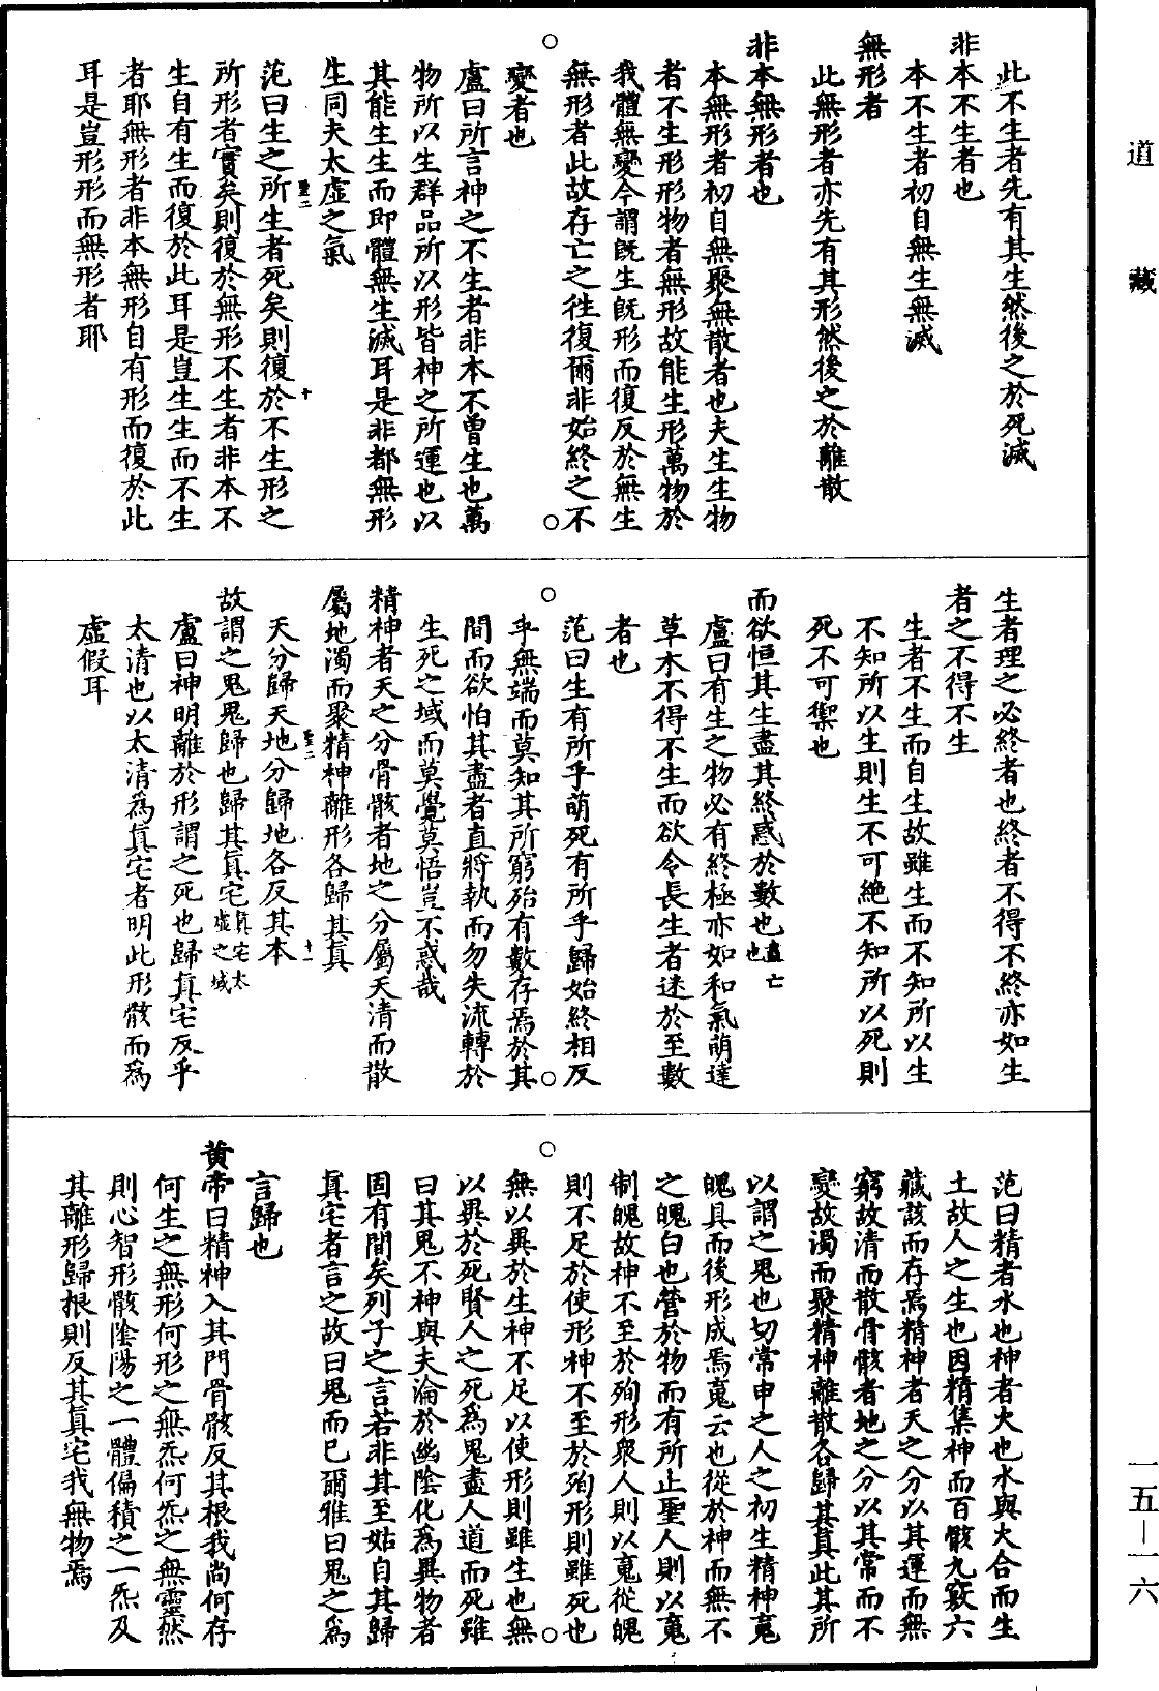 道藏
此不生者先有其生然後之於死滅
非本不生者也
本不生者初自無生無滅
無形者
此無形者亦先有其形然後之於離散
非本無形者也
本無形者初自無聚無散者也夫生生物
者不生形形物者無形故能生形萬物於
我體無變今謂既生既形而復反於無生
無形者此故存亡之徃復爾非始終之不
變者也
盧曰所言神之不生者非本不曾生也萬
物所以生群品所以形皆神之所運也以
其能生生而即體無生滅耳是非都無形
生同夫太虛之氣
范曰生之所生者死矣則復於不生形之
所形者實矣則復於無形不生者非本不
生自有生而復於此耳是豈生生而不生
者耶無形者非本無形自有形而復於此
耳是豈形形而無形者耶
聖二
十
生者理之必終者也終者不得不終亦如生
者之不得不生
生者不生而自生故雖生而不知所以生
不知所以生則生不可絶不知所以死則
死不可禦也
而欲恒其生盡其終惑於數也盡亡也
盧曰有生之物必有終極亦如和氣萌達
草木不得不生而欲令長生者迷於至數
者也
范曰生有所乎萌死有所乎歸始終相反
乎無端而莫知其所窮殆有數存焉於其
間而欲怕其盡者直將執而勿失流轉於
生死之域而莫覺莫悟豈不惑哉
精神者天之分骨骸者地之分屬天清而散
屬地濁而聚精神離形各歸其真
天分歸天地分歸地各反其本
故謂之鬼鬼歸也歸其真宅真宅太虛之域
盧曰神明離於形謂之死也歸真宅反乎
太清也以太清為真宅者明此形骸而為
虛假耳
聖二
十一
范曰精者水也神者火也水與火合而生
土故人之生也因精集神而百骸九竅六
藏該而存焉精神者天之分以其運而無
窮故清而散骨骸者地之分以其常而不
變故濁而聚精神離散各歸其真此其所
以謂之鬼也切常申之人之初生精神䰟
魄具而後形成焉䰟云也從於神而無不
之魄白也營於物而有所止聖人則以䰟
制魄故神不至於殉形衆人則以䰟從魄
則不足於使形神不至於殉形則雖死也
無以異於生神不足以使形則雖生也無
以異於死賢人之死為鬼盡人道而死雖
曰其鬼不神與夫淪於幽陰化為異物者
固有間矣列子之言若非其至姑自其歸
真宅者言之故曰鬼而已爾雅曰鬼之為
言歸也
黃帝曰精神入其門骨骸反其根我尚何存
何生之無形何形之無炁何炁之無靈然
則心智形骸陰陽之一體偏積之一炁及
其離形歸根則反其真宅我無物焉
一五—一六